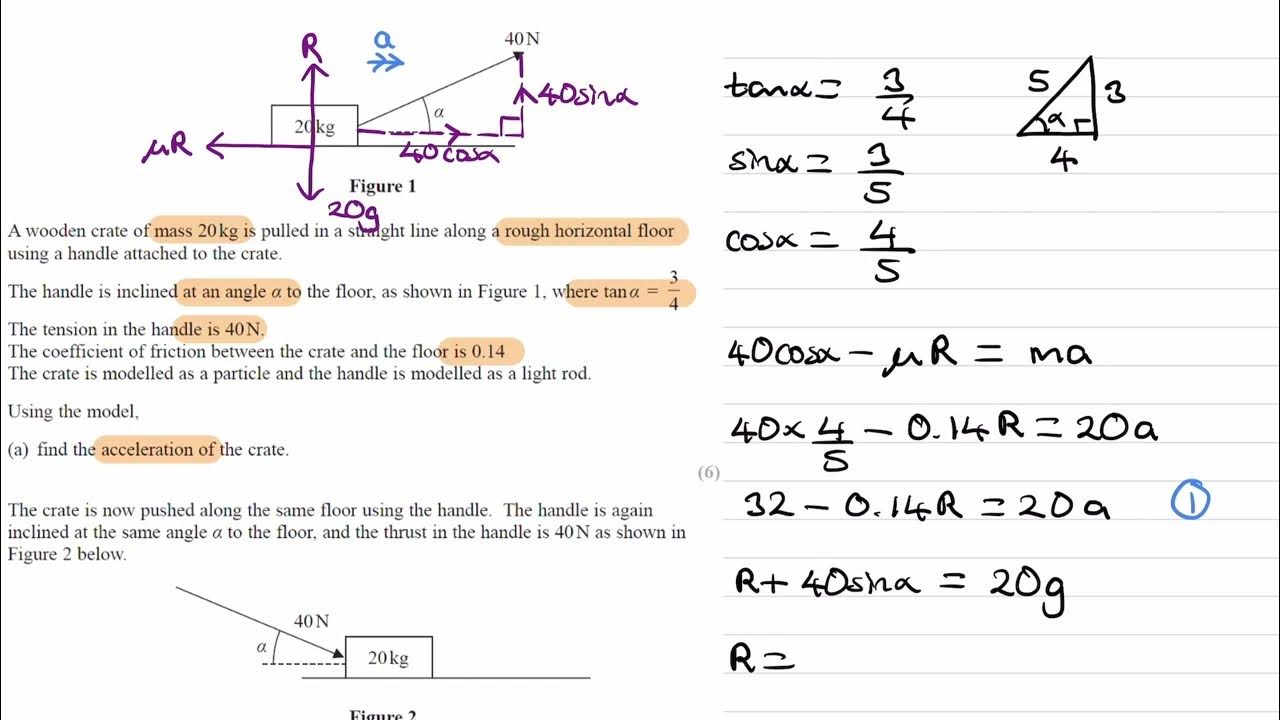 R
a
40N
40sinα
α
20kg
μR
40cosα
Figure 1
20g
A wooden crate of mass 20 kg is pulled in a straight line along a rough horizontal floor
using a handle attached to the crate.
The handle is inclined at an angle α to the floor, as shown in Figure 1, where tan α = 3/4
The tension in the handle is 40 N.
The coefficient of friction between the crate and the floor is 0.14
The crate is modelled as a particle and the handle is modelled as a light rod.
Using the model,
(a) find the acceleration of the crate.
(6)
The crate is now pushed along the same floor using the handle. The handle is again
inclined at the same angle α to the floor, and the thrust in the handle is 40 N as shown in
Figure 2 below.
40 N
α
20 kg
Figure 2
tanα = 3/4
5
3
α
4
sinα = 3/5
cosα = 4/5
40cosα − μR = ma
40 × 4/5 − 0.14R = 20a
32 − 0.14R = 20a ①
R + 40sinα = 20g
R =